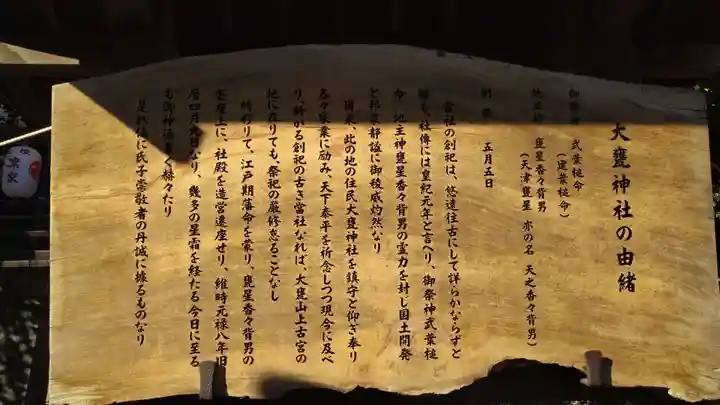 大甕神社の由緒
御祭神 武葉槌命
(建葉槌命)
地主神 甕星香々背男
(天津甕星 亦の名 天之香々背男)
例祭 五月五日
當社の創祀は、悠遠往古にして詳らかならずと
雖も、社傳には皇紀元年と言へり、御祭神武葉槌
命 地主神甕星香々背男の霊力を封じ国土開発
と邦家静謐に御稜威灼然なり
爾来、此の地の住民大甕神社を鎮守と仰ぎ奉り
各々家業に励み、天下泰平を祈念しつつ現今に及べ
り、斯かる創祀の古き當社なれば、大甕山上古宮の
地に在りても、祭祀の厳修怠ることなし
時移りて、江戸期藩命を蒙り、甕星香々背男の
宿魂石上に、社殿を造営遷座せり、維時元禄八年旧
暦四月九日なり、幾多の星霜を経たる今日に至る
も御神徳赫く赫々たり
是れ偏に氏子崇敬者の丹誠に據るものなり